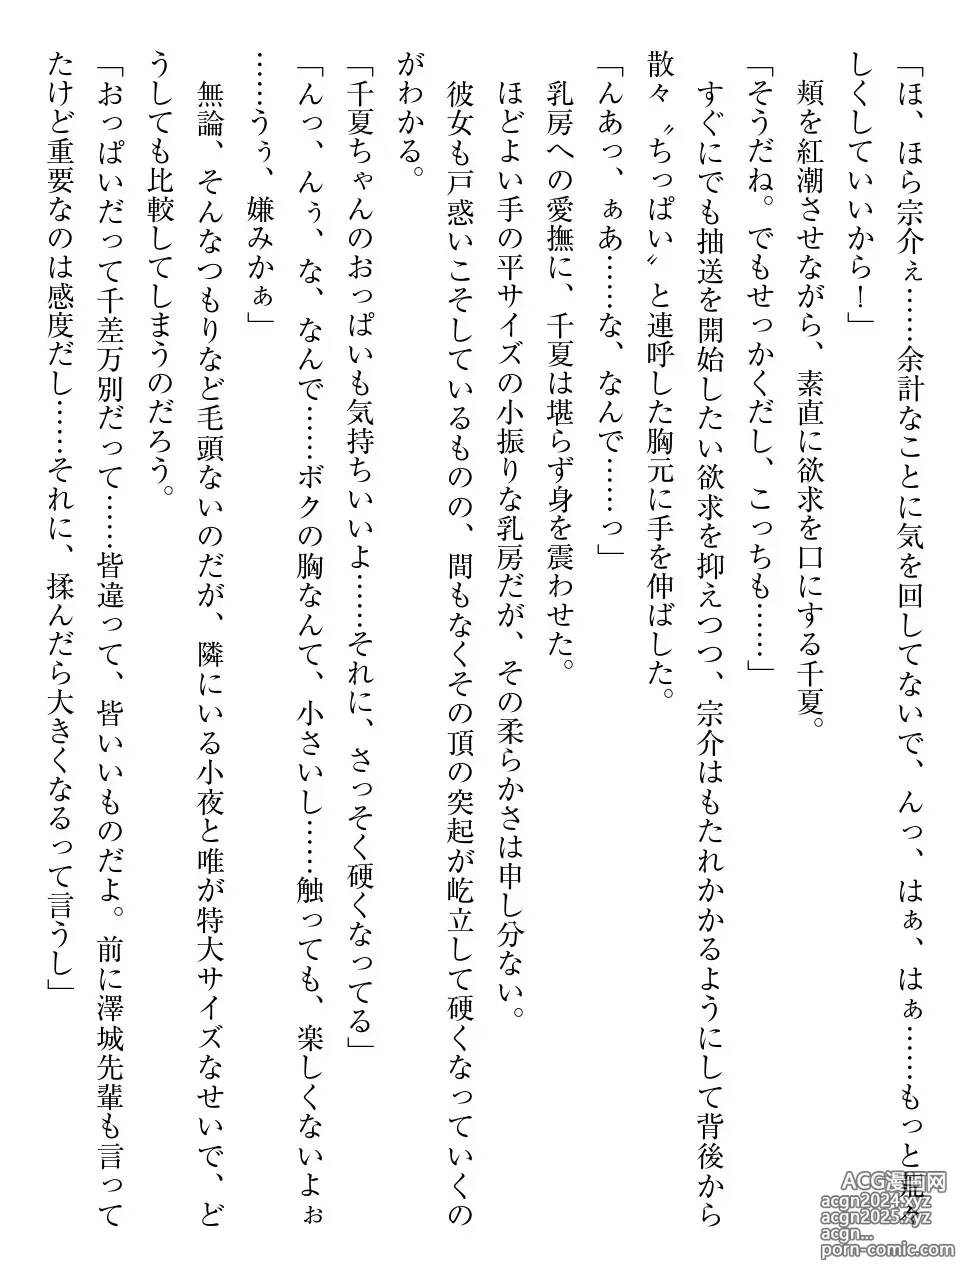 「ほ、ほら宗介ぇ……余計なことに気を回してないで、んっ、はぁ、はぁ……もっと荒々
しくしていいから！」
頬を紅潮させながら、素直に欲求を口にする千夏。
「そうだね。でもせっかくだし、こっちも……」
すぐにでも抽送を開始したい欲求を抑えつつ、宗介はもたれかかるようにして背後から
散々〝ちっぱい〟と連呼した胸元に手を伸ばした。
「んあっ、ぁあ……な、なんで……っ」
乳房への愛撫に、千夏は堪らず身を震わせた。
ほどよい手の平サイズの小振りな乳房だが、その柔らかさは申し分ない。
彼女も戸惑いこそしているものの、間もなくその頂の突起が屹立して硬くなっていくの
がわかる。
「千夏ちゃんのおっぱいも気持ちいいよ……それに、さっそく硬くなってる」
「んっ、んぅ、な、なんで……ボクの胸なんて、小さいし……触っても、楽しくないよぉ
……うぅ、嫌みかぁ」
無論、そんなつもりなど毛頭ないのだが、隣にいる小夜と唯が特大サイズなせいで、ど
うしても比較してしまうのだろう。
「おっぱいだって千差万別だって……皆違って、皆いいものだよ。前に澤城先輩も言って
たけど重要なのは感度だし……それに、揉んだら大きくなるって言うし」
ACG漫画网
acgn2024.xyz
acgn2025.xyz
acgn...
porn-comic.com